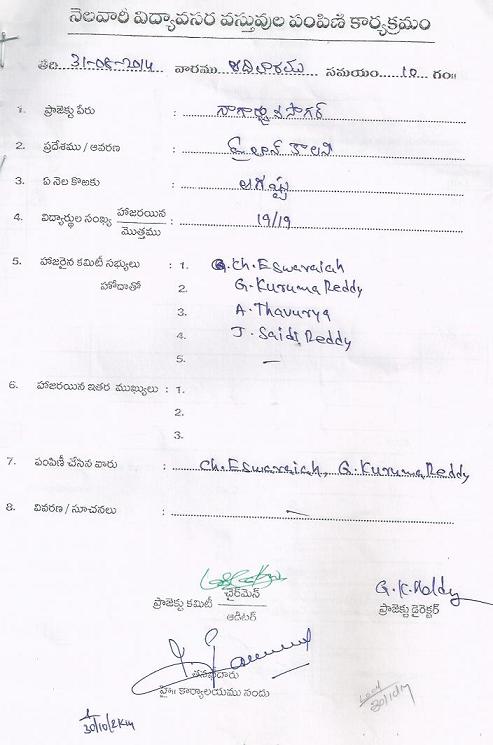 నెలవారీ విద్యావసర వస్తువుల పంపిణి కార్యక్రమం
తేది 31-08-2014 వారము ఆదివారము సమయం 10 గం॥
1. ప్రాజెక్టు పేరు : నాగార్జున సాగర్
2. ప్రదేశము / ఆవరణ : హిల్ కాలని
3. ఏ నెల కొఱకు : ఆగష్టు
4. విద్యార్థుల సంఖ్య హాజరయిన / మొత్తము : 19/19
5. హాజరైన కమిటీ సభ్యులు : 1. Ch. Eswaraiah
హోదాతో 2. G. Kuruma Reddy
3. A. Thavurya
4. J. Saidi Reddy
5. —
6. హాజరయిన ఇతర ముఖ్యులు : 1.
2.
3.
7. పంపిణీ చేసిన వారు : Ch. Eswaraiah, G. Kuruma Reddy
8. వివరణ / సూచనలు : —
ప్రాజెక్టు కమిటీ చైర్‌మెన్ / ఆడిటర్
G. K. Reddy
ప్రాజెక్టు డైరెక్టర్
హై॥ కార్యాలయము నందు